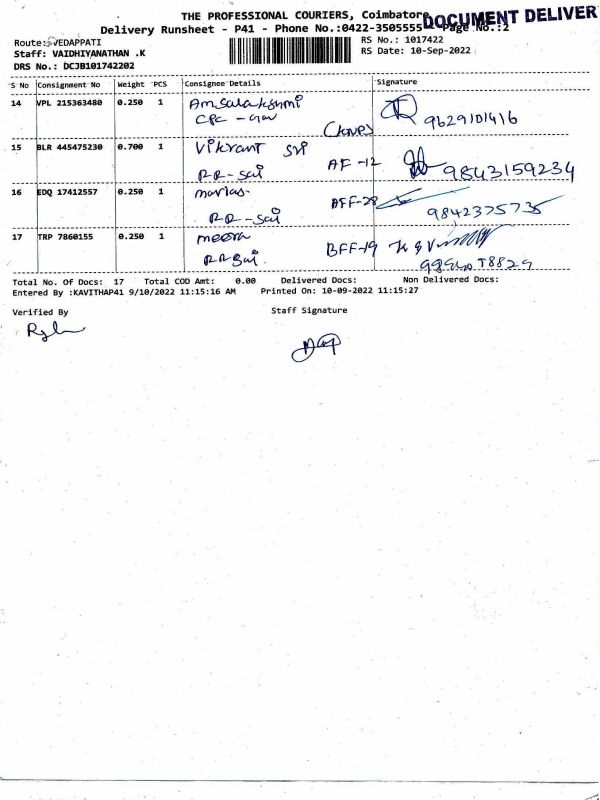 THE PROFESSIONAL COURIERS, Coimbatore
DOCUMENT DELIVER
Delivery Runsheet - P41 - Phone No.:0422-3505555 Page No.:2
Route: VEDAPPATI RS No.: 1017422
Staff: VAIDHIYANATHAN .K RS Date: 10-Sep-2022
DRS No.: DCJB101742202
S No Consignment No Weight PCS Consignee Details Signature
14 VPL 215363480 0.250 1 Amsalakshmi
CPC - 9629101416
15 BLR 445475230 0.700 1 Vikrant Sri AF-12 9843159234
RR-Sai
16 EDQ 17412557 0.250 1 marias. AFF-28
RR-Sai 9842375735
17 TRP 7860155 0.250 1 meera BFF-19
RR Sai.
Total No. Of Docs: 17 Total COD Amt: 0.00 Delivered Docs: Non Delivered Docs:
Entered By :KAVITHAP41 9/10/2022 11:15:16 AM Printed On: 10-09-2022 11:15:27
Verified By Staff Signature